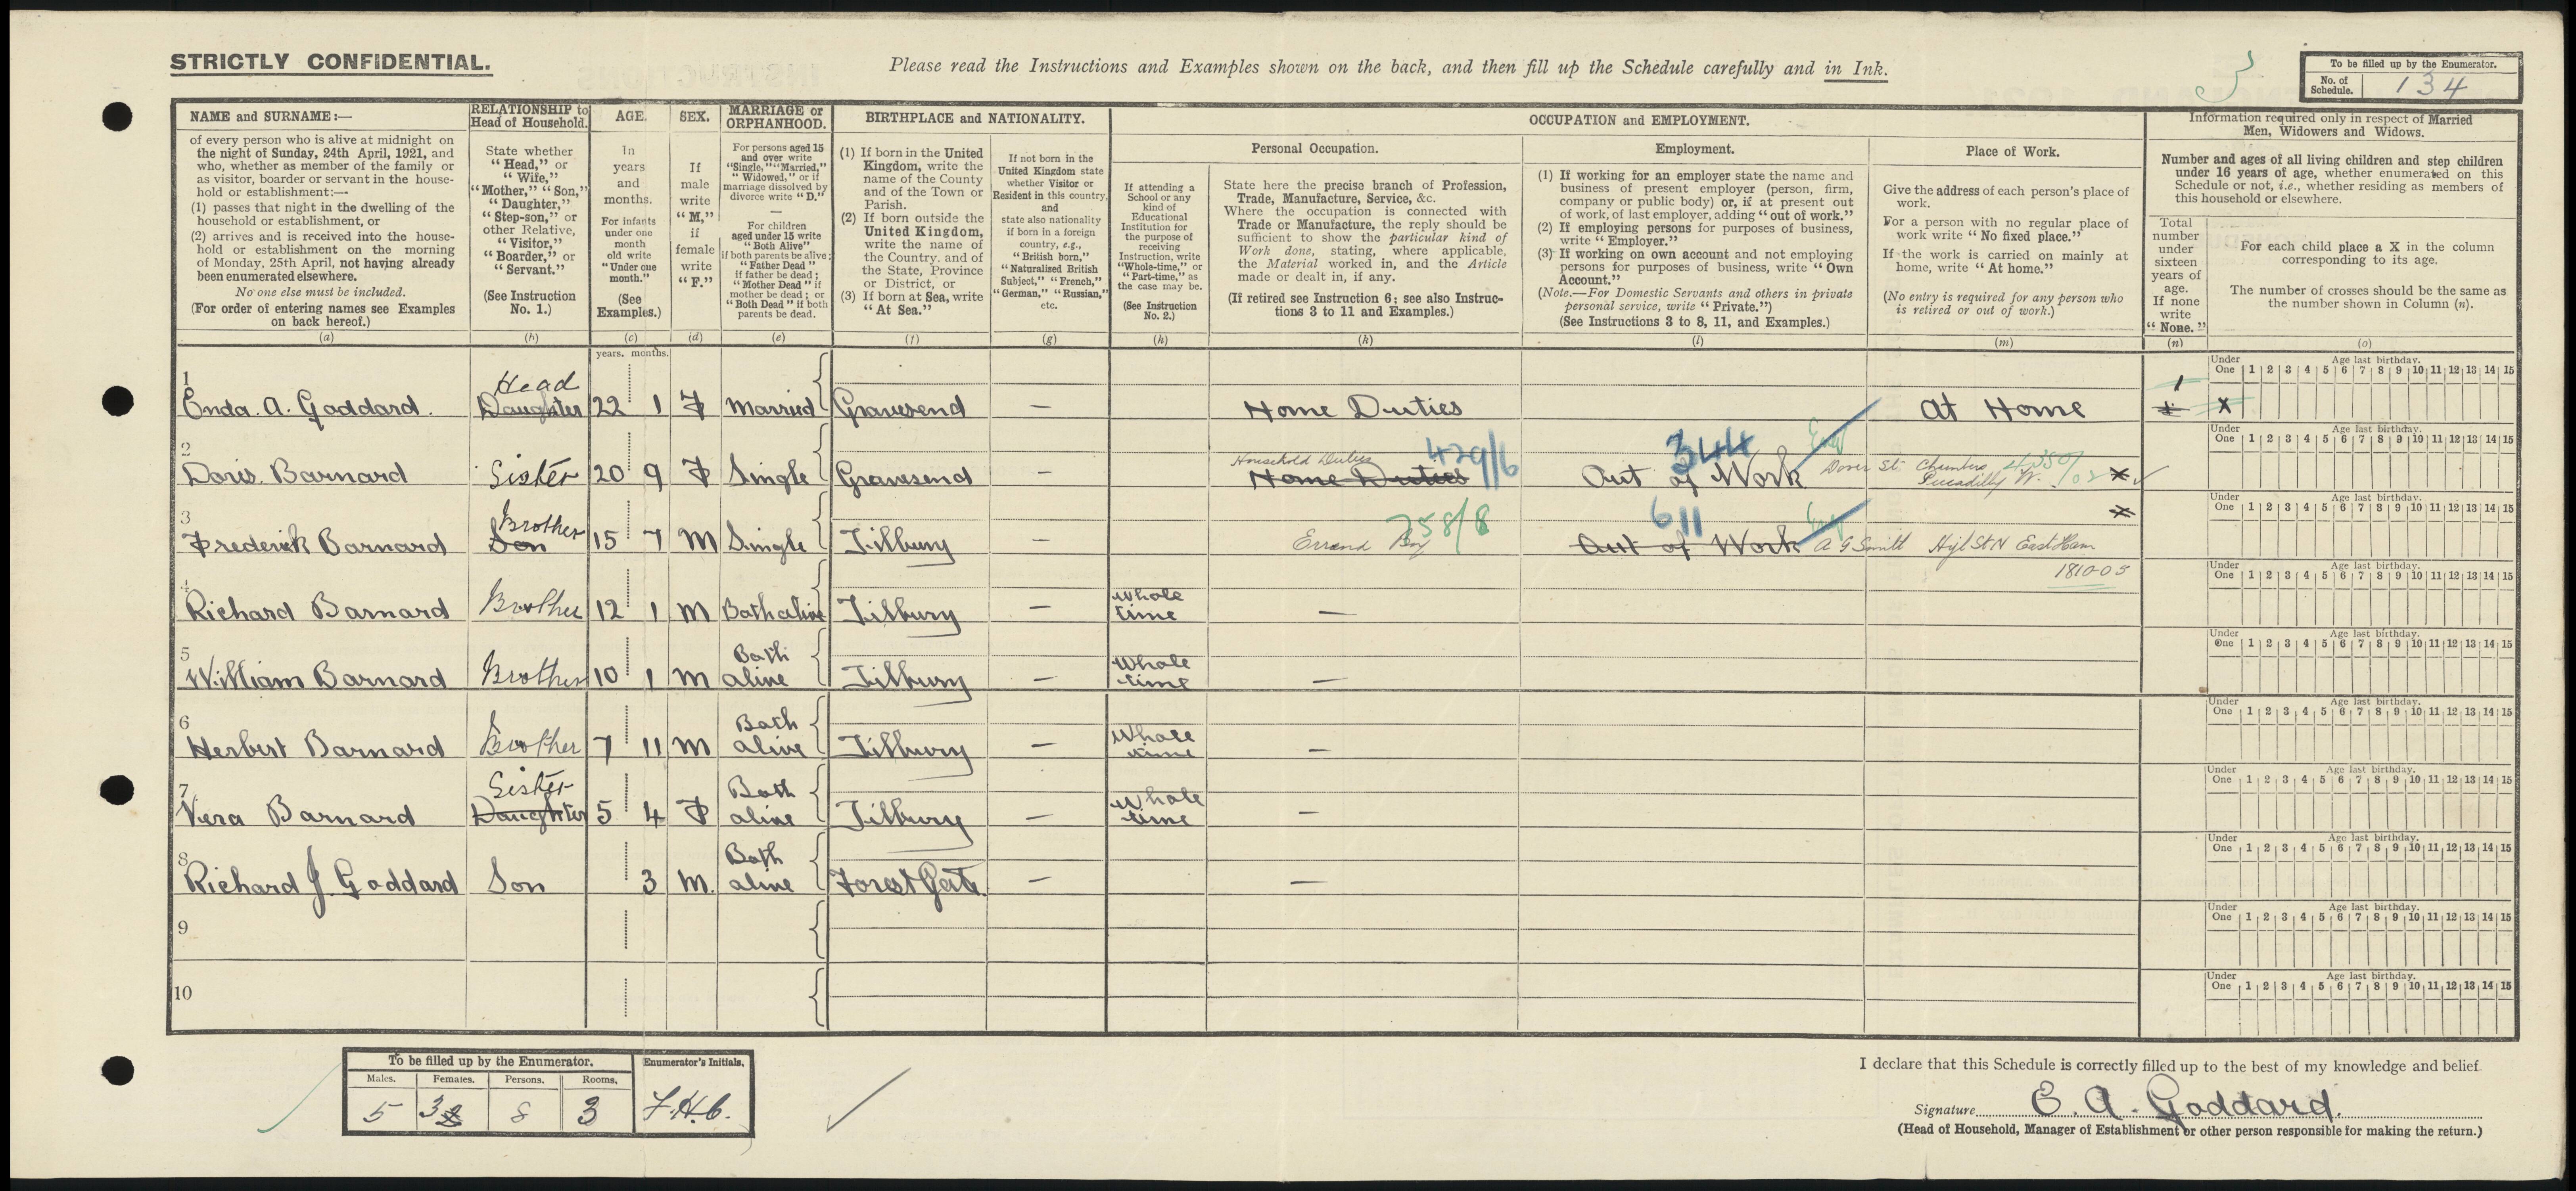 STRICTLY CONFIDENTIAL.
Please read the Instructions and Examples shown on the back, and then fill up the Schedule carefully and in Ink.
To be filled up by the Enumerator.
No. of Schedule. 134
NAME and SURNAME:—
of every person who is alive at midnight on
the night of Sunday, 24th April, 1921, and
who, whether as member of the family or
as visitor, boarder or servant in the house-
hold or establishment:—
(1) passes that night in the dwelling of the
household or establishment, or
(2) arrives and is received into the house-
hold or establishment on the morning
of Monday, 25th April, not having already
been enumerated elsewhere.
No one else must be included.
(For order of entering names see Examples
on back hereof.)
(a)
RELATIONSHIP to
Head of Household.
State whether
"Head," or
"Wife,"
"Mother," "Son,"
"Daughter,"
"Step-son," or
other Relative,
"Visitor,"
"Boarder," or
"Servant."
(See Instruction
No. 1.)
(b)
AGE.
In
years
and
months.
For infants
under one
month
old write
"Under one
month."
(See
Examples.)
(c)
SEX.
If
male
write
"M,"
if
female
write
"F."
(d)
MARRIAGE or
ORPHANHOOD.
For persons aged 15
and over write
"Single," "Married,"
"Widowed," or if
marriage dissolved by
divorce write "D."
—
For children
aged under 15 write
"Both Alive"
if both parents be alive;
"Father Dead"
if father be dead;
"Mother Dead" if
mother be dead; or
"Both Dead" if both
parents be dead.
(e)
BIRTHPLACE and NATIONALITY.
(1) If born in the United
Kingdom, write the
name of the County
and of the Town or
Parish.
(2) If born outside the
United Kingdom,
write the name of
the Country, and of
the State, Province
or District, or
(3) If born at Sea, write
"At Sea."
(f)
If not born in the
United Kingdom state
whether Visitor or
Resident in this country,
and
state also nationality
if born in a foreign
country, e.g.,
"British born,"
"Naturalised British
Subject," "French,"
"German," "Russian,"
etc.
(g)
OCCUPATION and EMPLOYMENT.
If attending a
School or any
kind of
Educational
Institution for
the purpose of
receiving
Instruction, write
"Whole-time," or
"Part-time," as
the case may be.
(See Instruction
No. 2.)
(h)
Personal Occupation.
State here the precise branch of Profession,
Trade, Manufacture, Service, &c.
Where the occupation is connected with
Trade or Manufacture, the reply should be
sufficient to show the particular kind of
Work done, stating, where applicable,
the Material worked in, and the Article
made or dealt in, if any.
(If retired see Instruction 6; see also Instruc-
tions 3 to 11 and Examples.)
(k)
Employment.
(1) If working for an employer state the name and
business of present employer (person, firm,
company or public body) or, if at present out
of work, of last employer, adding "out of work."
(2) If employing persons for purposes of business,
write "Employer."
(3) If working on own account and not employing
persons for purposes of business, write "Own
Account."
(Note.—For Domestic Servants and others in private
personal service, write "Private.")
(See Instructions 3 to 8, 11, and Examples.)
(l)
Place of Work.
Give the address of each person's place of
work.
For a person with no regular place of
work write "No fixed place."
If the work is carried on mainly at
home, write "At home."
(No entry is required for any person who
is retired or out of work.)
(m)
Information required only in respect of Married
Men, Widowers and Widows.
Number and ages of all living children and step children
under 16 years of age, whether enumerated on this
Schedule or not, i.e., whether residing as members of
this household or elsewhere.
Total
number
under
sixteen
years of
age.
If none
write
"None."
(n)
For each child place a X in the column
corresponding to its age.
The number of crosses should be the same as
the number shown in Column (n).
(o)
years. months.
Under One Age last birthday. 1 2 3 4 5 6 7 8 9 10 11 12 13 14 15
1 Enda. A. Goddard. Head Daughter 22 1 F Married Gravesend — Home Duties At Home 1 X
Under One Age last birthday. 1 2 3 4 5 6 7 8 9 10 11 12 13 14 15
2 Doris. Barnard Sister 20 9 F Single Gravesend — Household Duties Home Duties 429/6 344 Out of Work Dover St. Chambers Piccadilly W.
Under One Age last birthday. 1 2 3 4 5 6 7 8 9 10 11 12 13 14 15
3 Frederick Barnard Brother Son 15 7 M Single Tilbury — Errand Boy 758/8 611 Out of Work A G Smith High St N East Ham
1810-05
Under One Age last birthday. 1 2 3 4 5 6 7 8 9 10 11 12 13 14 15
4 Richard Barnard Brother 12 1 M Both alive Tilbury — Whole time —
Under One Age last birthday. 1 2 3 4 5 6 7 8 9 10 11 12 13 14 15
5 William Barnard Brother 10 1 M Both alive Tilbury — Whole time —
Under One Age last birthday. 1 2 3 4 5 6 7 8 9 10 11 12 13 14 15
6 Herbert Barnard Brother 7 11 M Both alive Tilbury — Whole time —
Under One Age last birthday. 1 2 3 4 5 6 7 8 9 10 11 12 13 14 15
7 Vera Barnard Sister Daughter 5 4 F Both alive Tilbury — Whole time —
Under One Age last birthday. 1 2 3 4 5 6 7 8 9 10 11 12 13 14 15
8 Richard J. Goddard Son 3 M. Both alive Forest Gate. — —
Under One Age last birthday. 1 2 3 4 5 6 7 8 9 10 11 12 13 14 15
9
Under One Age last birthday. 1 2 3 4 5 6 7 8 9 10 11 12 13 14 15
10
To be filled up by the Enumerator.
Males. Females. Persons. Rooms.
5 3 8 3
Enumerator's Initials.
F.H.C.
I declare that this Schedule is correctly filled up to the best of my knowledge and belief.
Signature E. A. Goddard.
(Head of Household, Manager of Establishment or other person responsible for making the return.)